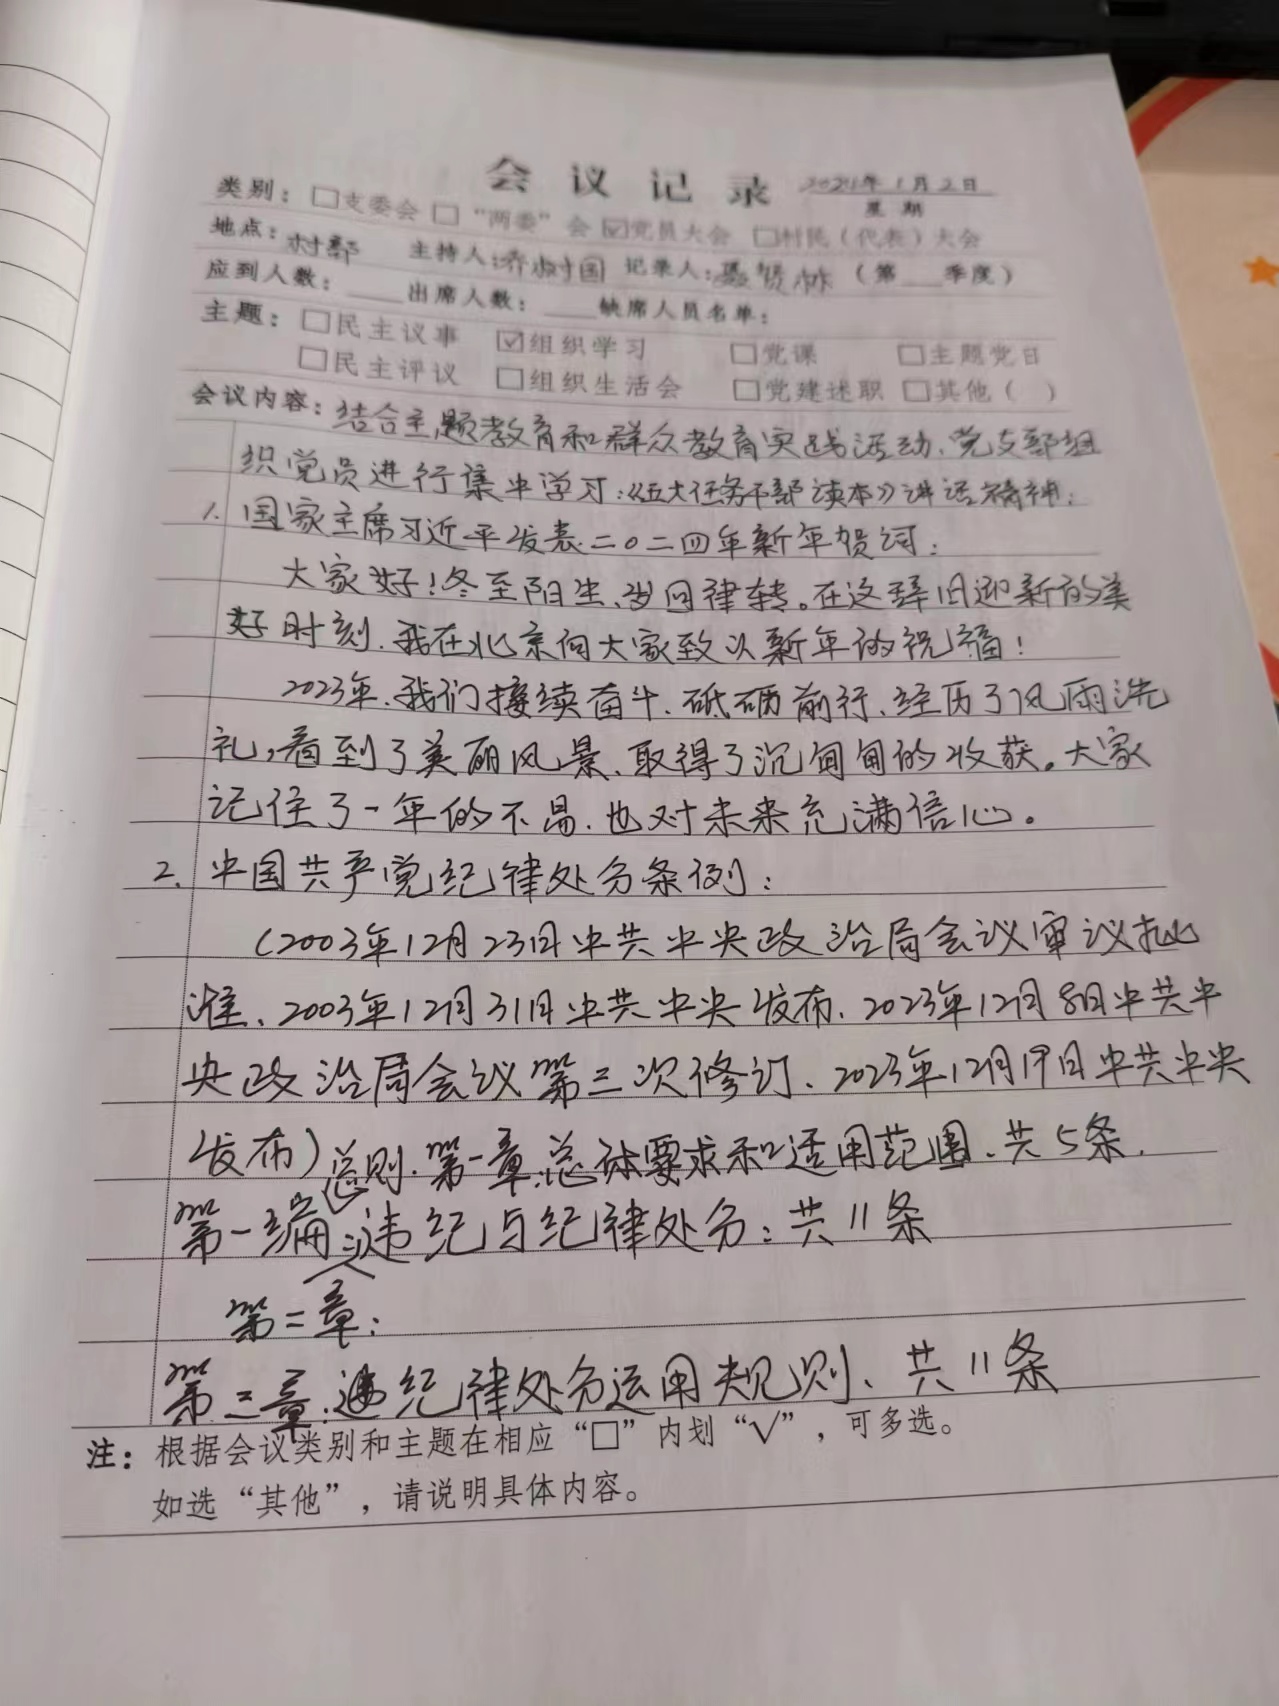 会 议 记 录 2024年1月2日
星 期
类别：□支委会 □“两委”会 ☑党员大会 □村民（代表）大会
地点：村部 主持人：乔树国 记录人：聂贤林 （第___季度）
应到人数：____出席人数：____缺席人员名单：
主题：□民主议事 ☑组织学习 □党课 □主题党日
□民主评议 □组织生活会 □党建述职 □其他（ ）
会议内容：结合主题教育和群众教育实践活动、党支部组
织党员进行集中学习：《五大任务干部读本》讲话精神：
1. 国家主席习近平发表二〇二四年新年贺词：
大家好！冬至阳生、岁回律转。在这辞旧迎新的美
好时刻、我在北京向大家致以新年的祝福！
2023年、我们接续奋斗、砥砺前行、经历了风雨洗
礼，看到了美丽风景、取得了沉甸甸的收获。大家
记住了一年的不易、也对未来充满信心。
2. 中国共产党纪律处分条例：
（2003年12月23日中共中央政治局会议审议批
准、2003年12月31日中共中央发布、2023年12月8日中共中
央政治局会议第三次修订、2023年12月19日中共中央
发布）总则、第一章：总体要求和适用范围、共5条、
第一编 违纪与纪律处分：共11条
第二章：
第三章：纪律处分运用规则、共11条
注：根据会议类别和主题在相应“□”内划“√”，可多选。
如选“其他”，请说明具体内容。